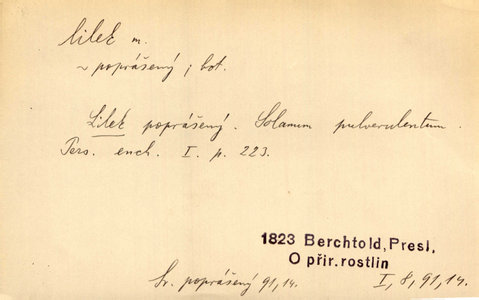 lilek m.
~ poprášený ; bot.
Lilek poprášený. Solanum pulverulentum.
Pers. ench. I. p. 223.
1823 Berchtold, Presl,
O přir. rostlin
Sv. poprášený 91,14.
I, 8, 91, 14.